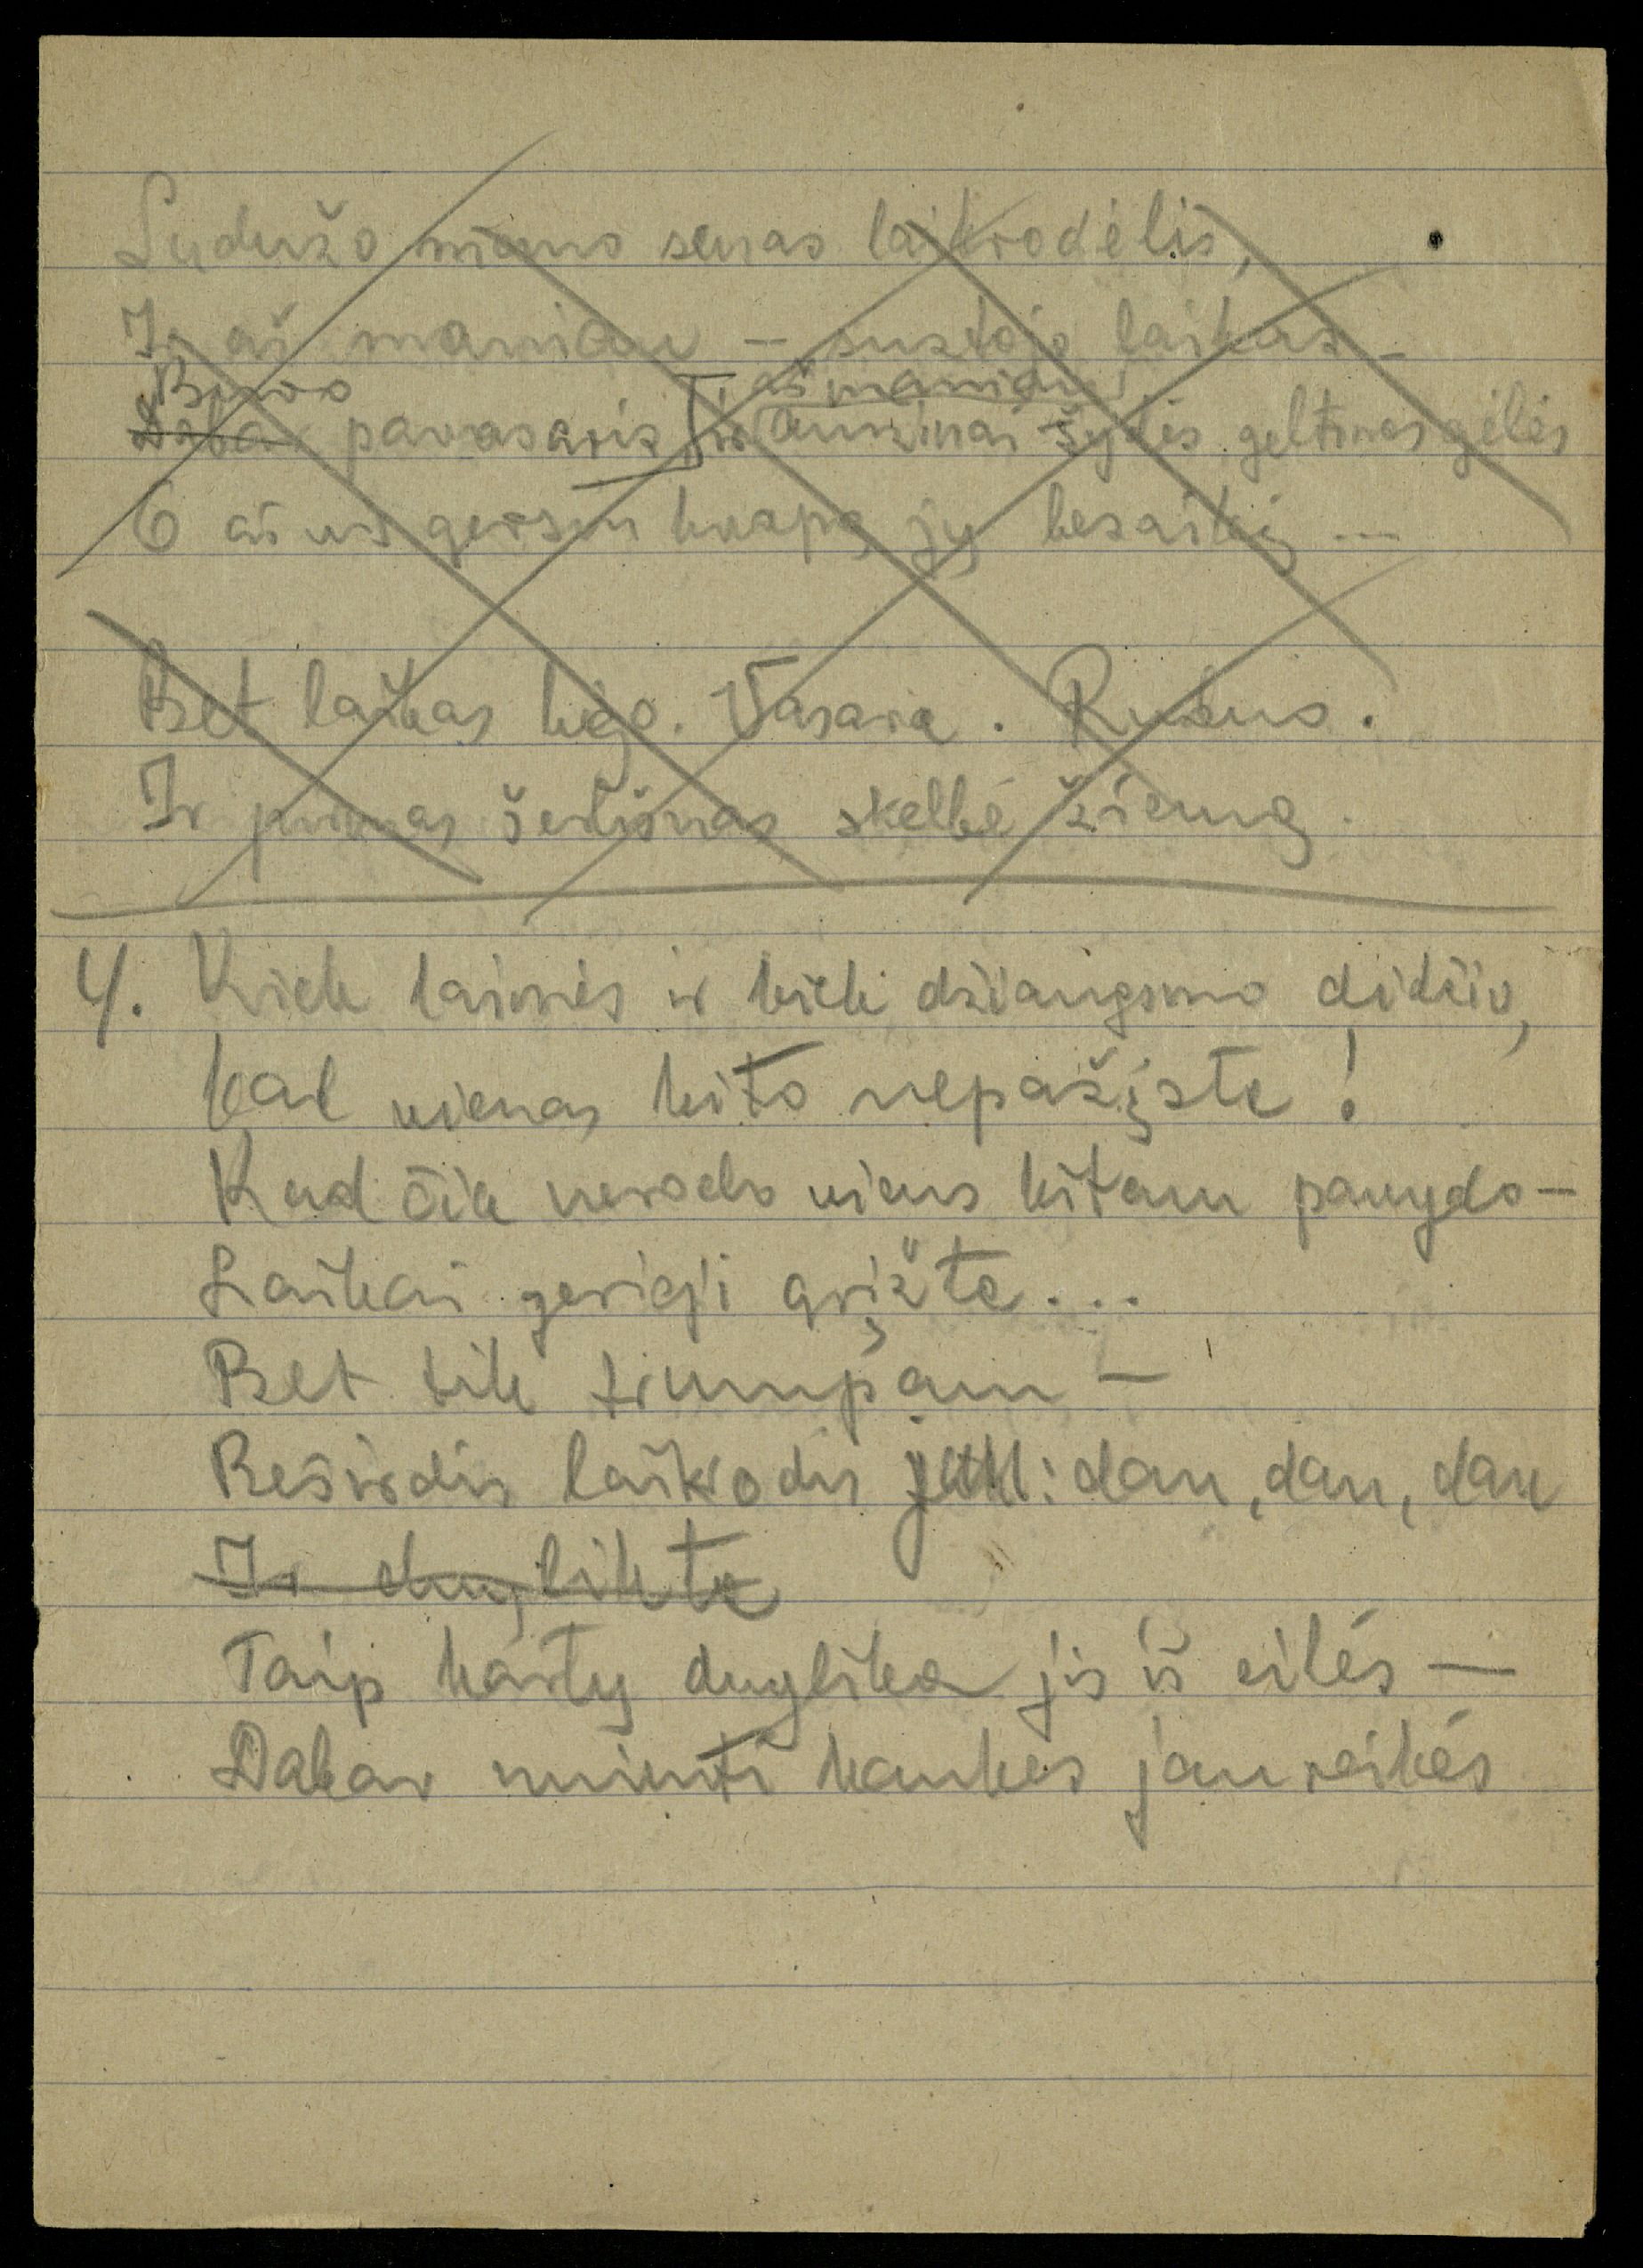 Sudužo mano senas laikrodėlis,
Ir aš maniau – sustojo laikas –
Buvo Ir aš maniau
Dabar pavasaris ir auksinai žydės geltonos gėlės
O aš vis gersiu kvapą jų besaikį ...
Bet laikas bėgo. Vasara. Ruduo.
Ir pirmas šerkšnas skelbė žiemą.
4. Kiek laimės ir kiek džiaugsmo didžio,
kad vienas kito nepažįsta!
Kad čia nerodo viens kitam pavydo –
Laikai gerieji grįžta...
Bet tik trumpam –
Beširdis laikrodis : dan, dan, dan
Ir dvylikta
Taip kartų dvylika jis iš eilės –
Dabar nuimti kaukes jau reikės